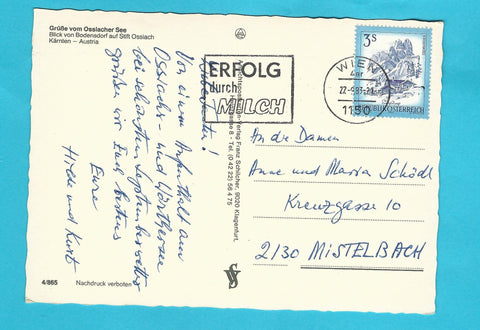 Grüße vom Ossiacher See
Blick von Bodensdorf auf Stift Ossiach
Kärnten – Austria
Von einem Aufenthalt am
Ossiacher- und Wörthersee
bei schönstem Septemberwetter
grüßen wir Euch bestens
Eure
Hilde und Kurt
4/865
Nachdruck verboten
Verlag Franz Schilcher, 9020 Klagenfurt,
8 - Tel. (0 42 22) 56 4 75
ERFOLG
durch
MILCH
WIEN
1150
3S
REPUBLIK ÖSTERREICH
An die Damen
Anne und Maria Schödl
Kreuzgasse 10
2130 MISTELBACH